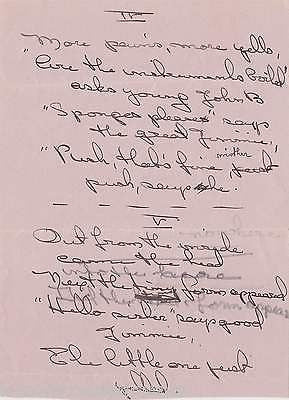 IV
More pains, more yells,
"Are the instruments boiled"
asks young John B
"Sponges please" says
the great Jimmie,
"Push, that's fine, just
mother
push, says he.
V
Out from the
came the head
Next the tiny form appeared
"Hello sister" says good
Jimmie,
The little one just